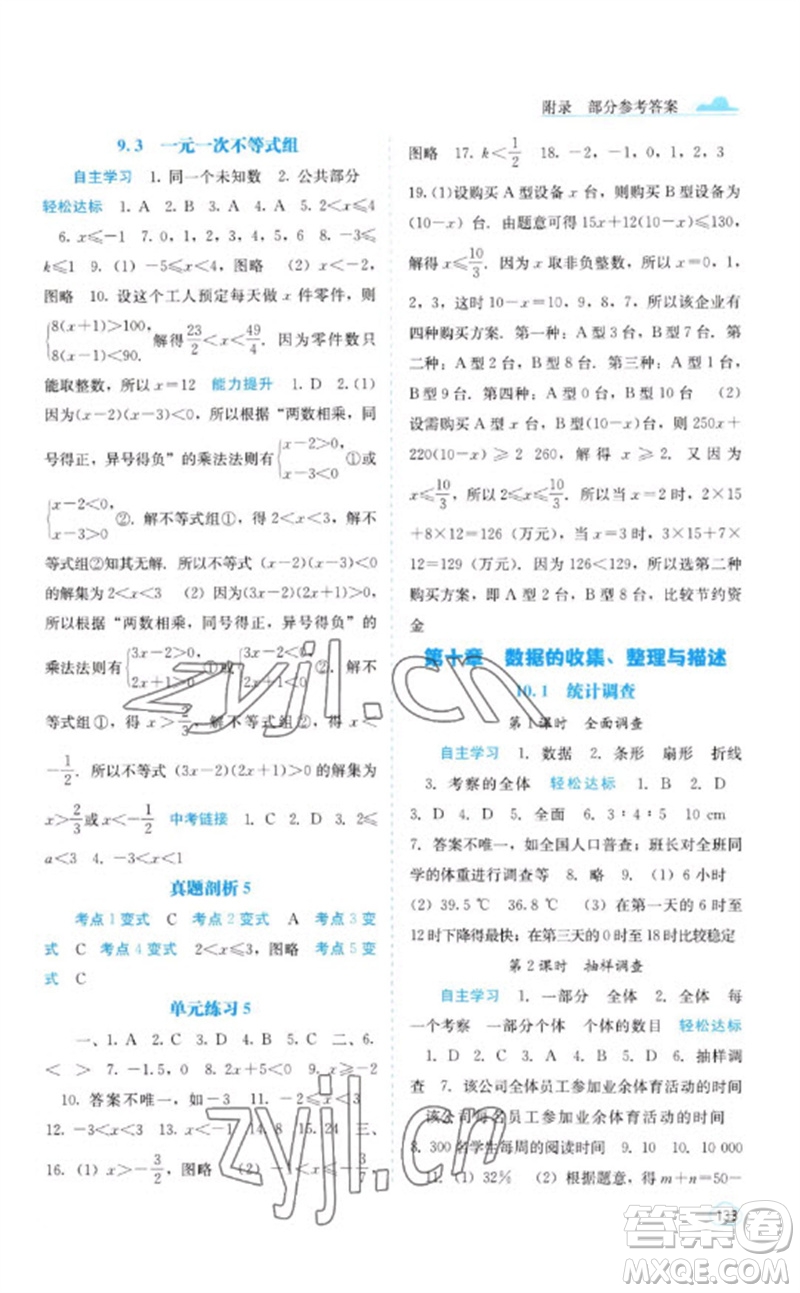 附录 部分参考答案
9.3 一元一次不等式组
自主学习 1. 同一个未知数 2. 公共部分
轻松达标 1. A 2. B 3. A 4. A 5. 2<x≤4
6. x≤-1 7. 0,1,2,3,4,5 8. -3≤
k≤1 9. (1) -5≤x<4,图略 (2) x<-2,
图略 10. 设这个工人预定每天做 x 件零件,则
{8(x+1)>100, 8(x-1)<90. 解得 23/2<x<49/4. 因为零件数只
能取整数,所以 x=12 能力提升 1. D 2. (1)
因为(x-2)(x-3)<0,所以根据“两数相乘,同
号得正,异号得负”的乘法法则有{x-2>0 x-3<0 ①或
{x-2<0 x-3>0 ②. 解不等式组①,得 2<x<3,解不
等式组②知其无解. 所以不等式 (x-2)(x-3)<0
的解集为 2<x<3 (2) 因为(3x-2)(2x+1)>0,
所以根据“两数相乘,同号得正,异号得负”的
乘法法则有{3x-2>0 2x+1>0 ①或{3x-2<0 2x+1<0 ②. 解不等
式组①,得 x>2/3,解不等式组②,得 x<
-1/2. 所以不等式 (3x-2)(2x+1)>0 的解集为
x>2/3 或 x<-1/2 中考链接 1. C 2. D 3. 2≤
a<3 4. -3<x<1
真题剖析 5
考点 1 变式 C 考点 2 变式 A 考点 3 变
式 C 考点 4 变式 2<x≤3,图略 考点 5 变
式 C
单元练习 5
一、1. A 2. C 3. B 4. D 5. C 二、6.
< > 7. -1.5, 0 8. 2x+5<0 9. x≥-2
10. 答案不唯一,如 -3 11. -2≤x<3
12. -3<x<3 13. x<-1 14. 8 15. 24 三、
16. (1) x>-3/2,图略 (2) -2≤x<-3/7,
图略 17. k<1/2 18. -2,-1,0,1,2,3
19. (1) 设购买 A 型设备 x 台,则购买 B 型设备为
(10-x) 台. 由题意可得 15x+12(10-x)≤130,
解得 x≤10/3. 因为 x 取非负整数,所以 x=0,1,
2,3,这时 10-x=10,9,8,7,所以该企业有
四种购买方案. 第一种:A 型 3 台,B 型 7 台. 第
二种:A 型 2 台,B 型 8 台. 第三种:A 型 1 台,
B 型 9 台. 第四种:A 型 0 台,B 型 10 台 (2)
设需购买 A 型 x 台,B 型 (10-x) 台,则 250x+
220(10-x)≥2 260,解得 x≥2. 又因为
x≤10/3,所以 2≤x≤10/3,所以当 x=2 时,2×15
+8×12=126(万元),当 x=3 时,3×15+7×
12=129(万元). 因为 126<129,所以选第二种
购买方案,即 A 型 2 台,B 型 8 台,比较节约资
金
第十章 数据的收集、整理与描述
10.1 统计调查
第 1 课时 全面调查
自主学习 1. 数据 2. 条形 扇形 折线
3. 考察的全体 轻松达标 1. B 2. D
3. D 4. D 5. 全面 6. 3∶4∶5 10 cm
7. 答案不唯一,如全国人口普查;班长对全班同
学的体重进行调查等 8. 略 9. (1) 6 小时
(2) 39.5 ℃ 36.8 ℃ (3) 在第一天的 6 时至
12 时下降得最快;在第三天的 0 时至 18 时比较稳定
第 2 课时 抽样调查
自主学习 1. 一部分 全体 2. 全体 每
一个考察 一部分个体 个体的数目 轻松达标
1. D 2. D 3. B 4. C 5. D 6. 抽样调
查 7. 该公司全体员工参加业余体育活动的时间
该公司每名员工参加业余体育活动的时间
8. 300 名学生每周的阅读时间 9. 10 10. 10 000
11. (1) 32% (2) 根据题意,得 m+n=50-
133
zyjl.cn
zyjl.cn
答案圈
MXQE.COM